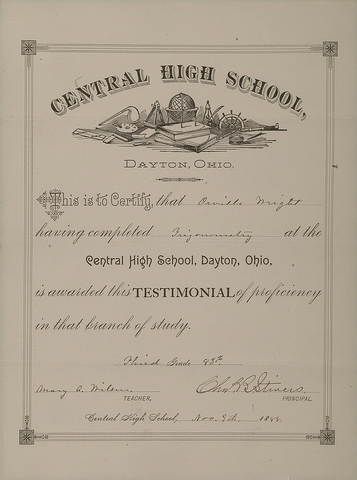 CENTRAL HIGH SCHOOL,
DAYTON, OHIO.
This is to Certify, that Orville Wright
having completed Trigonometry at the
Central High School, Dayton, Ohio,
is awarded this TESTIMONIAL of proficiency
in that branch of study.
Third Grade 83
Mary A. Wilson Chas. B. Stivers
TEACHER, PRINCIPAL.
Central High School, Nov. 1888.